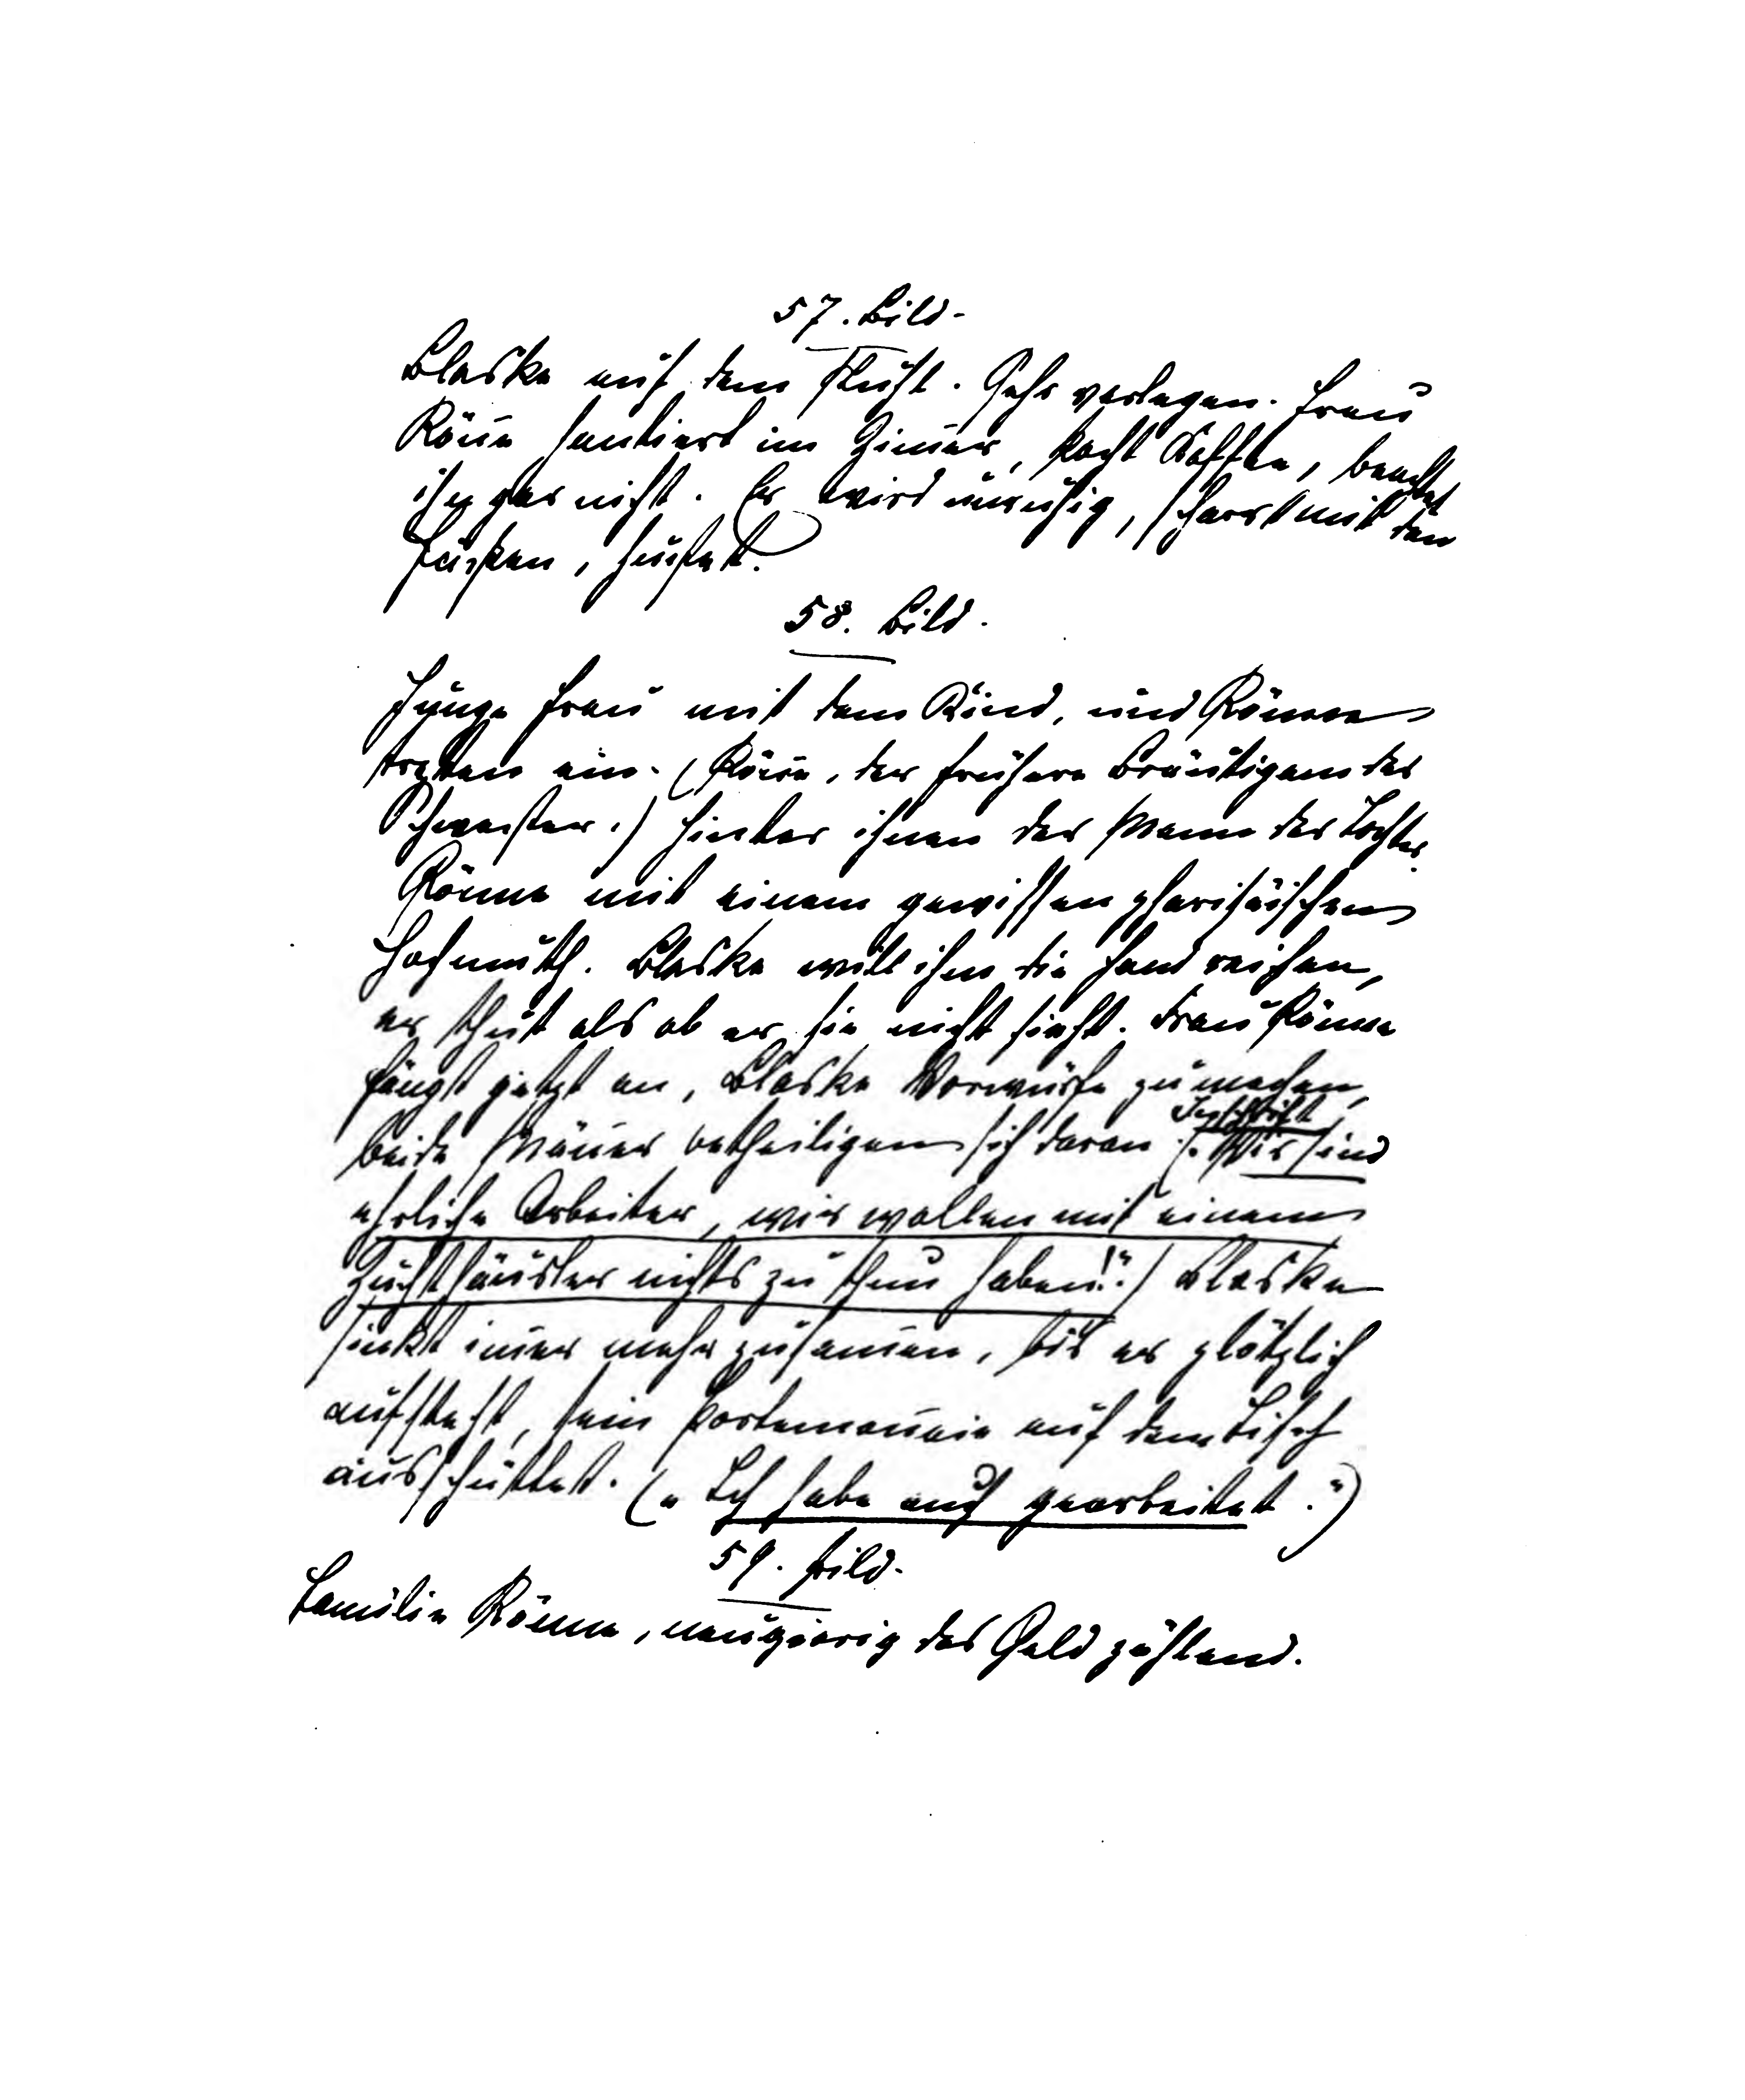 57. Bild.
Blaska auf dem Stuhl. Sehr verlegen. Frau
Röñe hantiert im Zim̄er, kocht Kaffee, beachtet
ihn gar nicht. Er wird unruhig, scharrt mit den
Füssen, hustet.
58. Bild.
Junge Frau mit dem Kind, und Rönne
treten ein. (Röñe, der frühere Bräutigam der
Schwester.) Hinter ihnen der Mann der Tochter
Rönne mit einem gewissen pharisäischen
Hochmuth. Blaska will ihm die Hand reichen,
er thut als ob er sie nicht sieht. Frau Rönne
fängt jetzt an, Blaska Vorwürfe zu machen,
beide Mäñer betheiligen sich daran. („Wir sind
ehrliche Arbeiter, wir wollen mit einem
Zuchthäusler nichts zu thun haben!“) Blaska
sinkt im̄er mehr zusam̄en, bis er plötzlich
aufsteht, sein Portemoñaie auf dem Tisch
ausschüttet. („Ich habe auch gearbeitet.“)
59. Bild.
Familie Rönne, neugierig das Geld zählend.